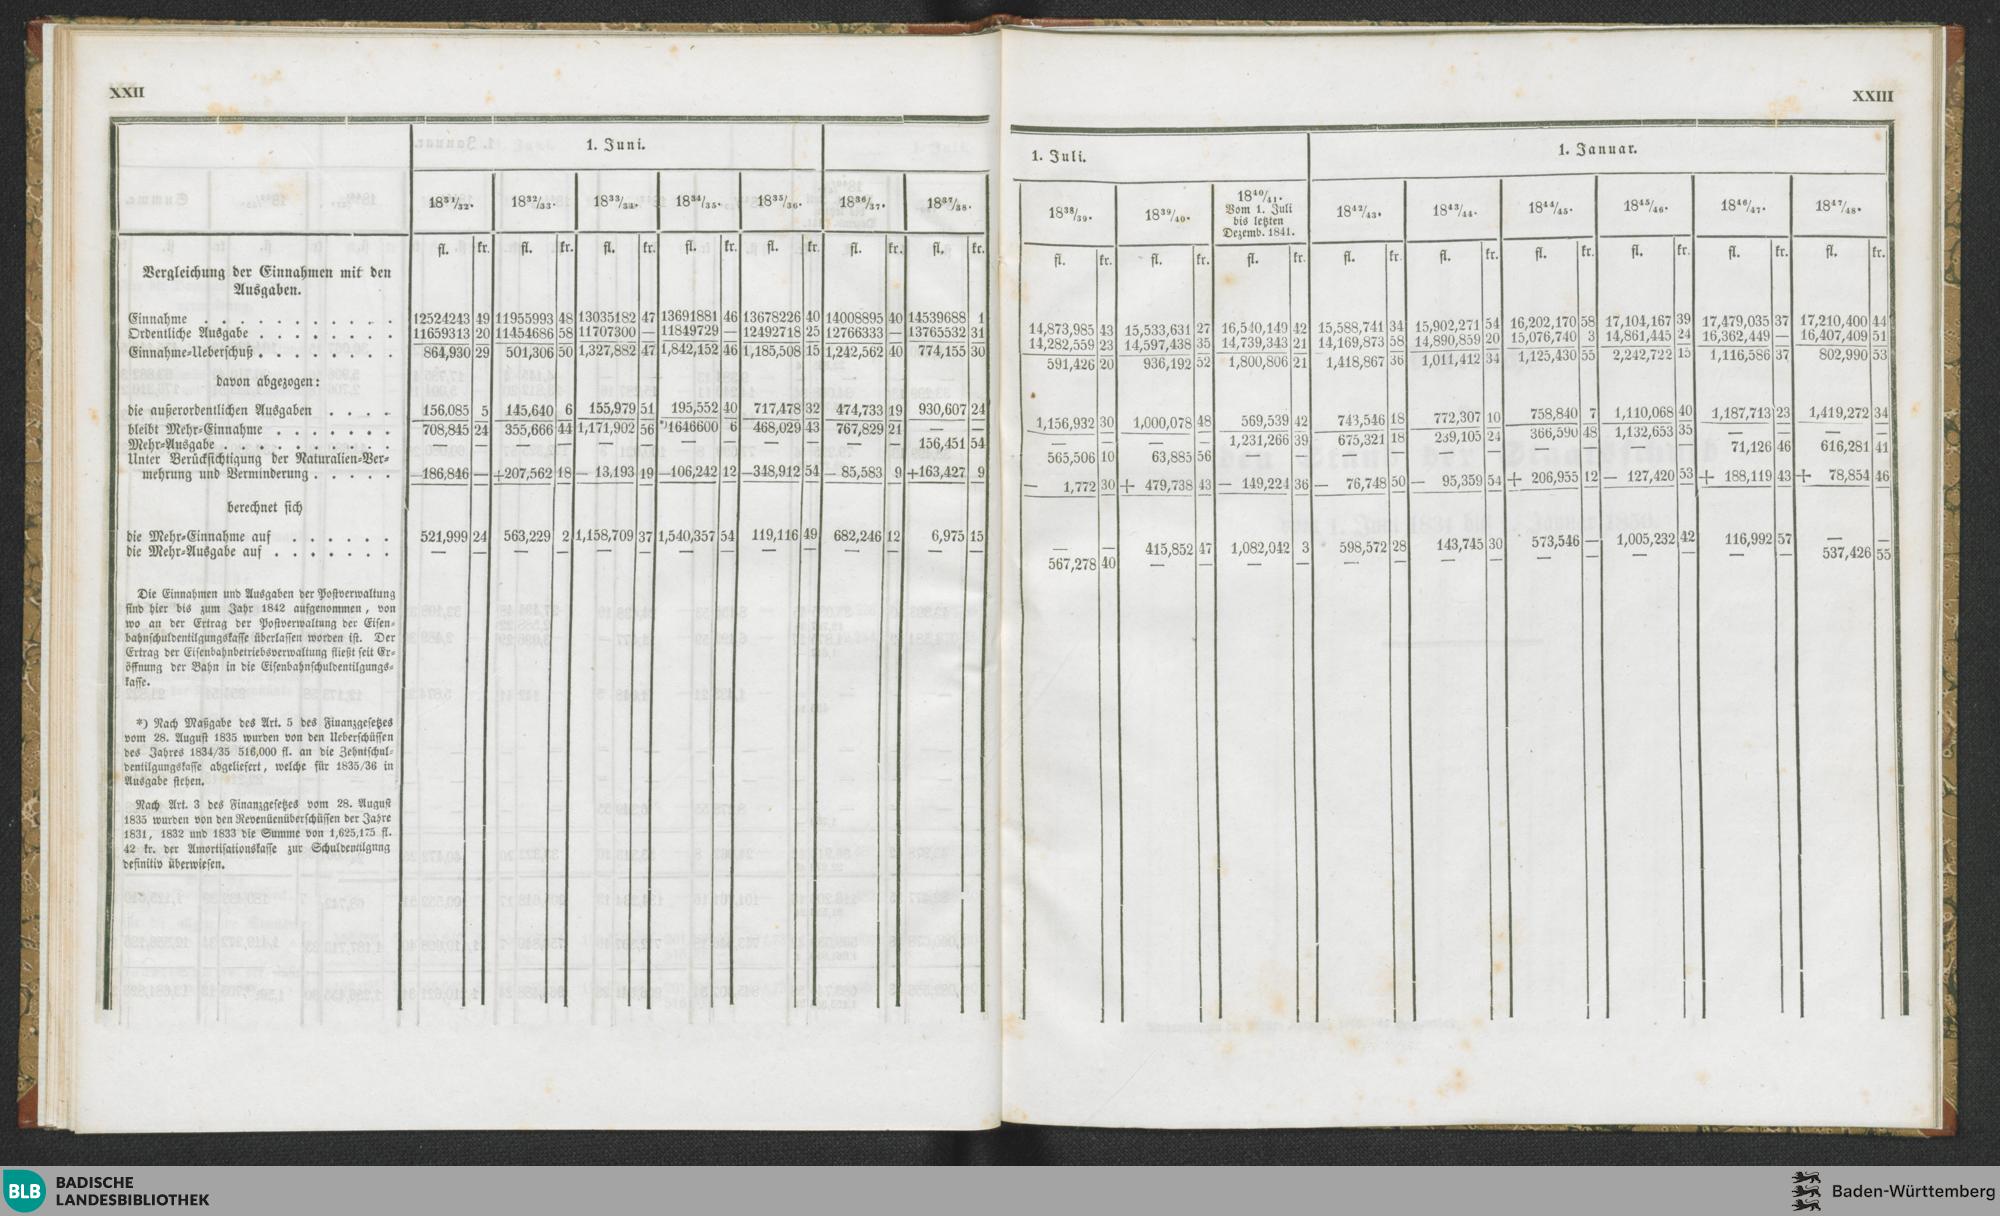 XXII
1. Juni.
1831/32. 1832/33. 1833/34. 1834/35. 1835/36. 1836/37. 1837/38.
fl. kr. fl. kr. fl. kr. fl. kr. fl. kr. fl. kr. fl. kr.
Vergleichung der Einnahmen mit den
Ausgaben.
Einnahme . . . . . . . . . . . 12524243 49 11955993 48 13035182 47 13691881 46 13678226 40 14008895 40 14539688 1
Ordentliche Ausgabe . . . . . . . . 11659313 20 11454686 58 11707300 — 11849729 — 12492718 25 12766333 — 13765532 31
Einnahme-Ueberschuß . . . . . . . . 864,930 29 501,306 50 1,327,882 47 1,842,152 46 1,185,508 15 1,242,562 40 774,155 30
davon abgezogen:
die außerordentlichen Ausgaben . . . . 156,085 5 145,640 6 155,979 51 195,552 40 717,478 32 474,733 19 930,607 24
bleibt Mehr-Einnahme . . . . . . . 708,845 24 355,666 44 1,171,902 56 *)1646600 6 468,029 43 767,829 21 — —
Mehr-Ausgabe . . . . . . . . . — — — — — — — — — — — — 156,451 54
Unter Berücksichtigung der Naturalien-Ver-
mehrung und Verminderung . . . . . —186,846 — +207,562 18 — 13,193 19 —106,242 12 —348,912 54 — 85,583 9 +163,427 9
berechnet sich
die Mehr-Einnahme auf . . . . . . 521,999 24 563,229 2 1,158,709 37 1,540,357 54 119,116 49 682,246 12 6,975 15
die Mehr-Ausgabe auf . . . . . . . — — — — — — — — — — — — — —
Die Einnahmen und Ausgaben der Postverwaltung
sind hier bis zum Jahr 1842 aufgenommen, von
wo an der Ertrag der Postverwaltung der Eisen-
bahnschuldentilgungskasse überlassen worden ist. Der
Ertrag der Eisenbahnbetriebsverwaltung fließt seit Er-
öffnung der Bahn in die Eisenbahnschuldentilgungs-
kasse.
*) Nach Maßgabe des Art. 5 des Finanzgesetzes
vom 28. August 1835 wurden von den Ueberschüssen
des Jahres 1834/35 516,000 fl. an die Zehntschul-
dentilgungskasse abgeliefert, welche für 1835/36 in
Ausgabe stehen.
Nach Art. 3 des Finanzgesetzes vom 28. August
1835 wurden von den Revenüenüberschüssen der Jahre
1831, 1832 und 1833 die Summe von 1,625,175 fl.
42 kr. der Amortisationskasse zur Schuldentilgung
definitiv überwiesen.
XXIII
1. Juli. 1. Januar.
1838/39. 1839/40. 1840/41. Vom 1. Juli bis letzten Dezemb. 1841. 1842/43. 1843/44. 1844/45. 1845/46. 1846/47. 1847/48.
fl. kr. fl. kr. fl. kr. fl. kr. fl. kr. fl. kr. fl. kr. fl. kr. fl. kr.
14,873,985 43 15,533,631 27 16,540,149 42 15,588,741 34 15,902,271 54 16,202,170 58 17,104,167 39 17,479,035 37 17,210,400 44
14,282,559 23 14,597,438 35 14,739,343 21 14,169,873 58 14,890,859 20 15,076,740 3 14,861,445 24 16,362,449 — 16,407,409 51
591,426 20 936,192 52 1,800,806 21 1,418,867 36 1,011,412 34 1,125,430 55 2,242,722 15 1,116,586 37 802,990 53
1,156,932 30 1,000,078 48 569,539 42 743,546 18 772,307 10 758,840 7 1,110,068 40 1,187,713 23 1,419,272 34
— — — — 1,231,266 39 675,321 18 239,105 24 366,590 48 1,132,653 35 — — — —
565,506 10 63,885 56 — — — — — — — — — — 71,126 46 616,281 41
— 1,772 30 + 479,738 43 — 149,224 36 — 76,748 50 — 95,359 54 + 206,955 12 — 127,420 53 + 188,119 43 + 78,854 46
— — 415,852 47 1,082,042 3 598,572 28 143,745 30 573,546 — 1,005,232 42 116,992 57 — —
567,278 40 — — — — — — — — — — — — — — 537,426 55
BLB
BADISCHE
LANDESBIBLIOTHEK
Baden-Württemberg